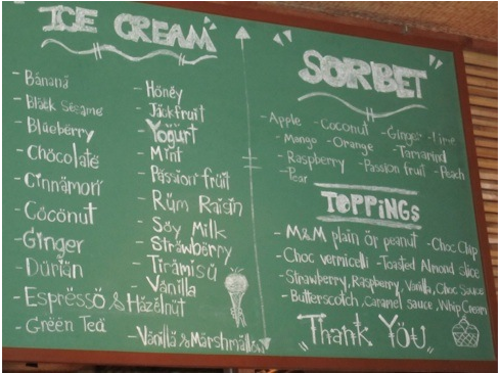 ICE CREAM
- Banana
- Black Sesame
- Blueberry
- Chocolate
- Cinnamon
- Coconut
- Ginger
- Durian
- Espresso & Hazelnut
- Green Tea
- Honey
- Jackfruit
- Yogurt
- Mint
- Passion fruit
- Rum Raisin
- Soy Milk
- Strawberry
- Tiramisu
- Vanilla
- Vanilla & Marshmallow
SORBET
- Apple - Coconut - Ginger - Lime
- Mango - Orange - Tamarind
- Raspberry - Passion fruit - Peach
- Pear
TOPPINGS
- M&M plain or peanut - Choc Chip
- Choc vermicelli - Toasted Almond slice
- Strawberry, Raspberry, Vanilla, Choc Sauce
- Butterscotch, Caramel sauce, Whip Cream
Thank You